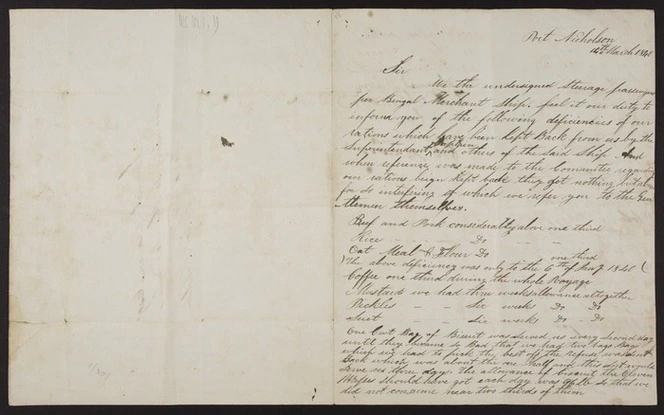 Port Nicholson
14th March 1840
Sir
We the undersigned Steerage passengers
per Bengal Merchant Ship. feel it our duty to
inform you of the following deficiencies of our
rations which have been kept Back from us by the
Superintendant, Captain and others of the said Ship. And
when reference was made to the Committee regarding
our rations beign kept back they got nothing but
for so interfering of which we refer you to the Gen
ttemen themselves.
Beef and Pork considerably above one third
Rice — Do — —
Oat Meal & Flour Do one third
(The above deficiency was only to the 6th of Jany 1840)
Coffee one third during the whole Voyage
Mustard we had three weeks allowance altogether
Pickles — — Six weeks Do Do
Suet — — Six weeks Do Do
One Cwt Bag of Biscuit was served us every second day
until they became so Bad that we had two bags
which we had to pick the best off the refuse was sent
Back which was about the one half and this
serve us three days. The allowance of biscuit the Eleven
Messes should have got each day was so that we
did not consume near two thirds of them